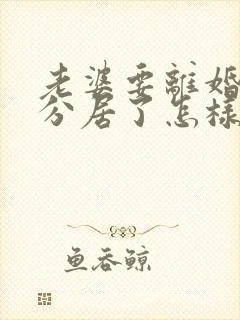 老婆要離婚
分居了怎樣
魚吞鲸